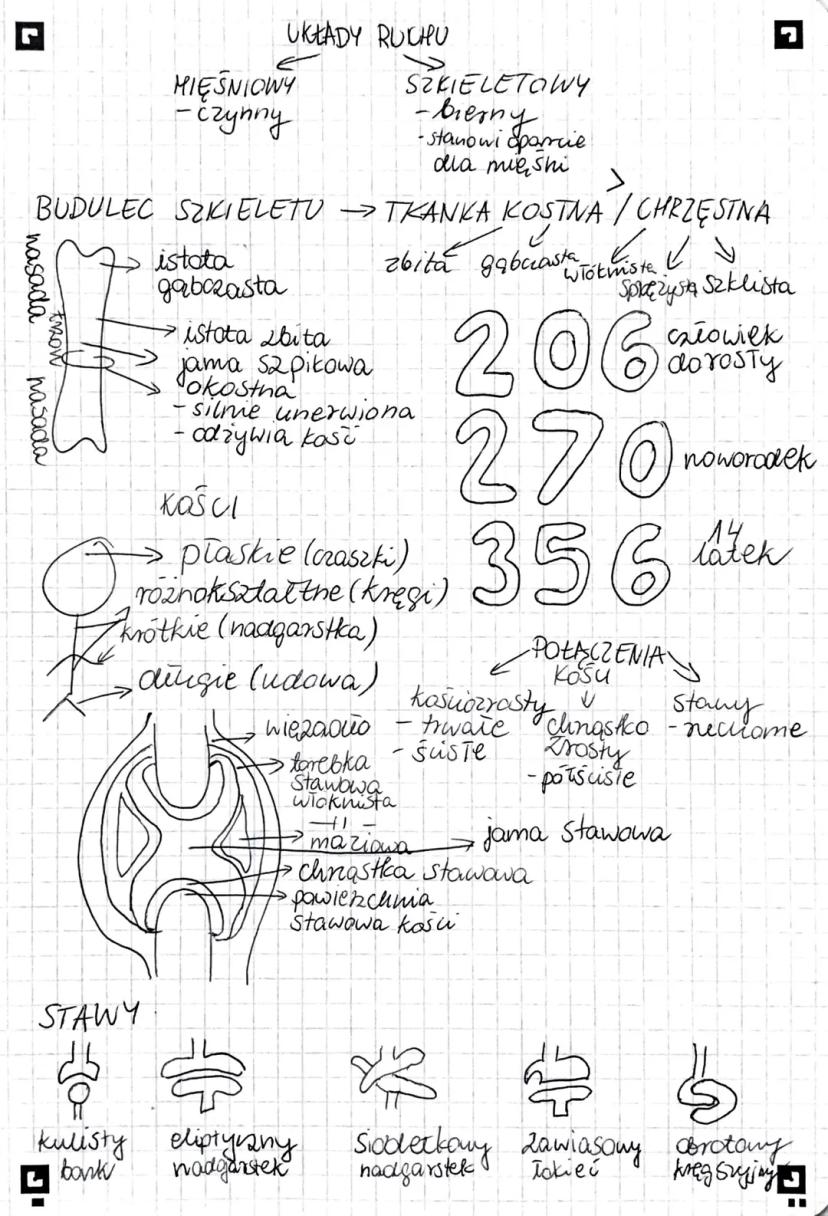 UKŁADY RUCHU
MIĘŚNIOWY
- czynny
SZKIELETOWY
- bierny
- stanowi oparcie
dla mięśni
BUDULEC SZKIELETU → TKANKA KOSTNA / CHRZĘSTNA
zbita gąbczasta włóknista sprężysta szklista
nasada
trzon
nasada
istota
gąbczasta
istota zbita
jama szpikowa
okostna
- silnie unerwiona
- odżywia kość
206 człowiek
dorosły
270 noworodek
356 14
latek
KOŚCI
płaskie (czaszki)
różnokształtne (kręgi)
krótkie (nadgarstka)
długie (udowa)
POŁĄCZENIA
KOŚCI
kościozrosty
- trwałe
- ścisłe
chrząstko
zrosty
- półścisłe
stawy
- ruchome
więzadło
torebka
stawowa
włóknista
-||-
maziowa
jama stawowa
chrząstka stawowa
powierzchnia
stawowa kości
STAWY
kulisty
bark
eliptyczny
nadgarstek
siodełkowy
nadgarstek
zawiasowy
łokieć
obrotowy
kręg szyjny